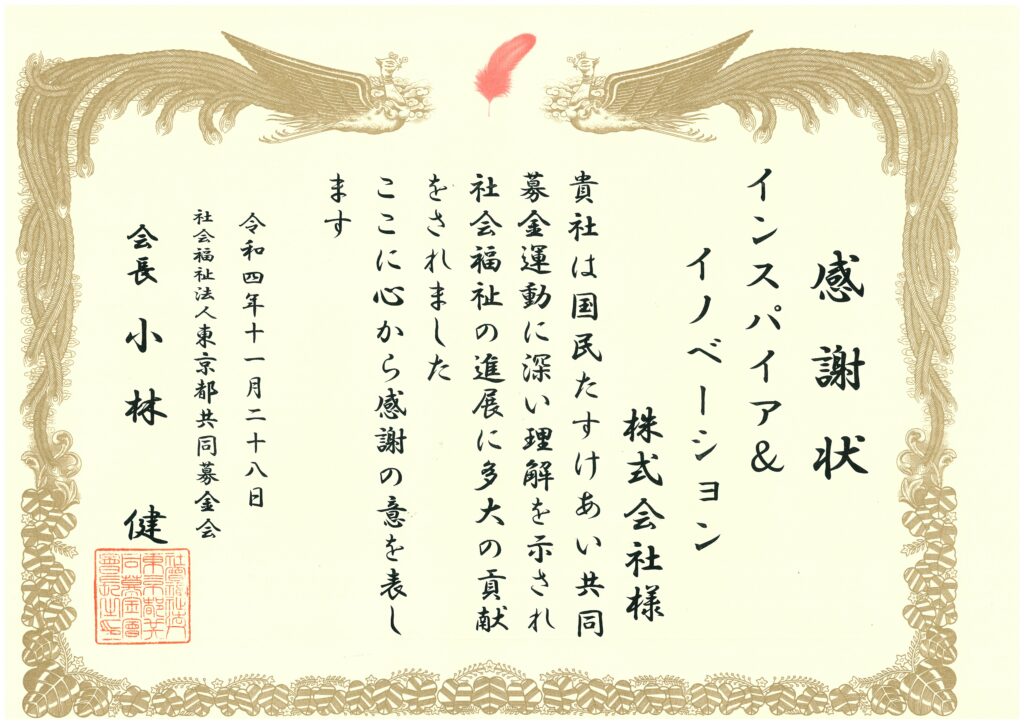 感謝状
インスパイア＆
イノベーション
株式会社様
貴社は国民たすけあい共同
募金運動に深い理解を示され
社会福祉の進展に多大の貢献
をされました
ここに心から感謝の意を表し
ます
令和四年十一月二十八日
社会福祉法人東京都共同募金会
会長 小林 健
社會福祉法人
東京都共
同募金會
會長之印